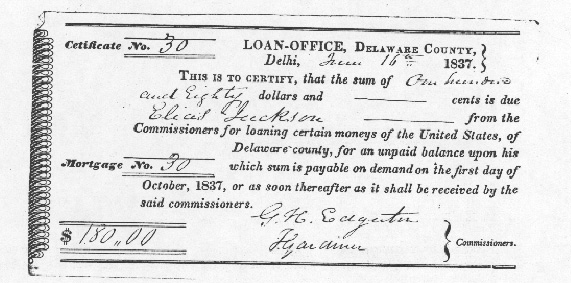 Cetificate No. 30
LOAN-OFFICE, DELAWARE COUNTY,
Delhi, June 16th 1837.
THIS IS TO CERTIFY, that the sum of One hundred
and Eighty dollars and cents is due
Elias Jackson from the
Commissioners for loaning certain moneys of the United States, of
Delaware county, for an unpaid balance upon his
Mortgage No. 30 which sum is payable on demand on the first day of
October, 1837, or as soon thereafter as it shall be received by the
said commissioners.
G. H. Edgerton
$ 180,,00
F Gardiner Commissioners.